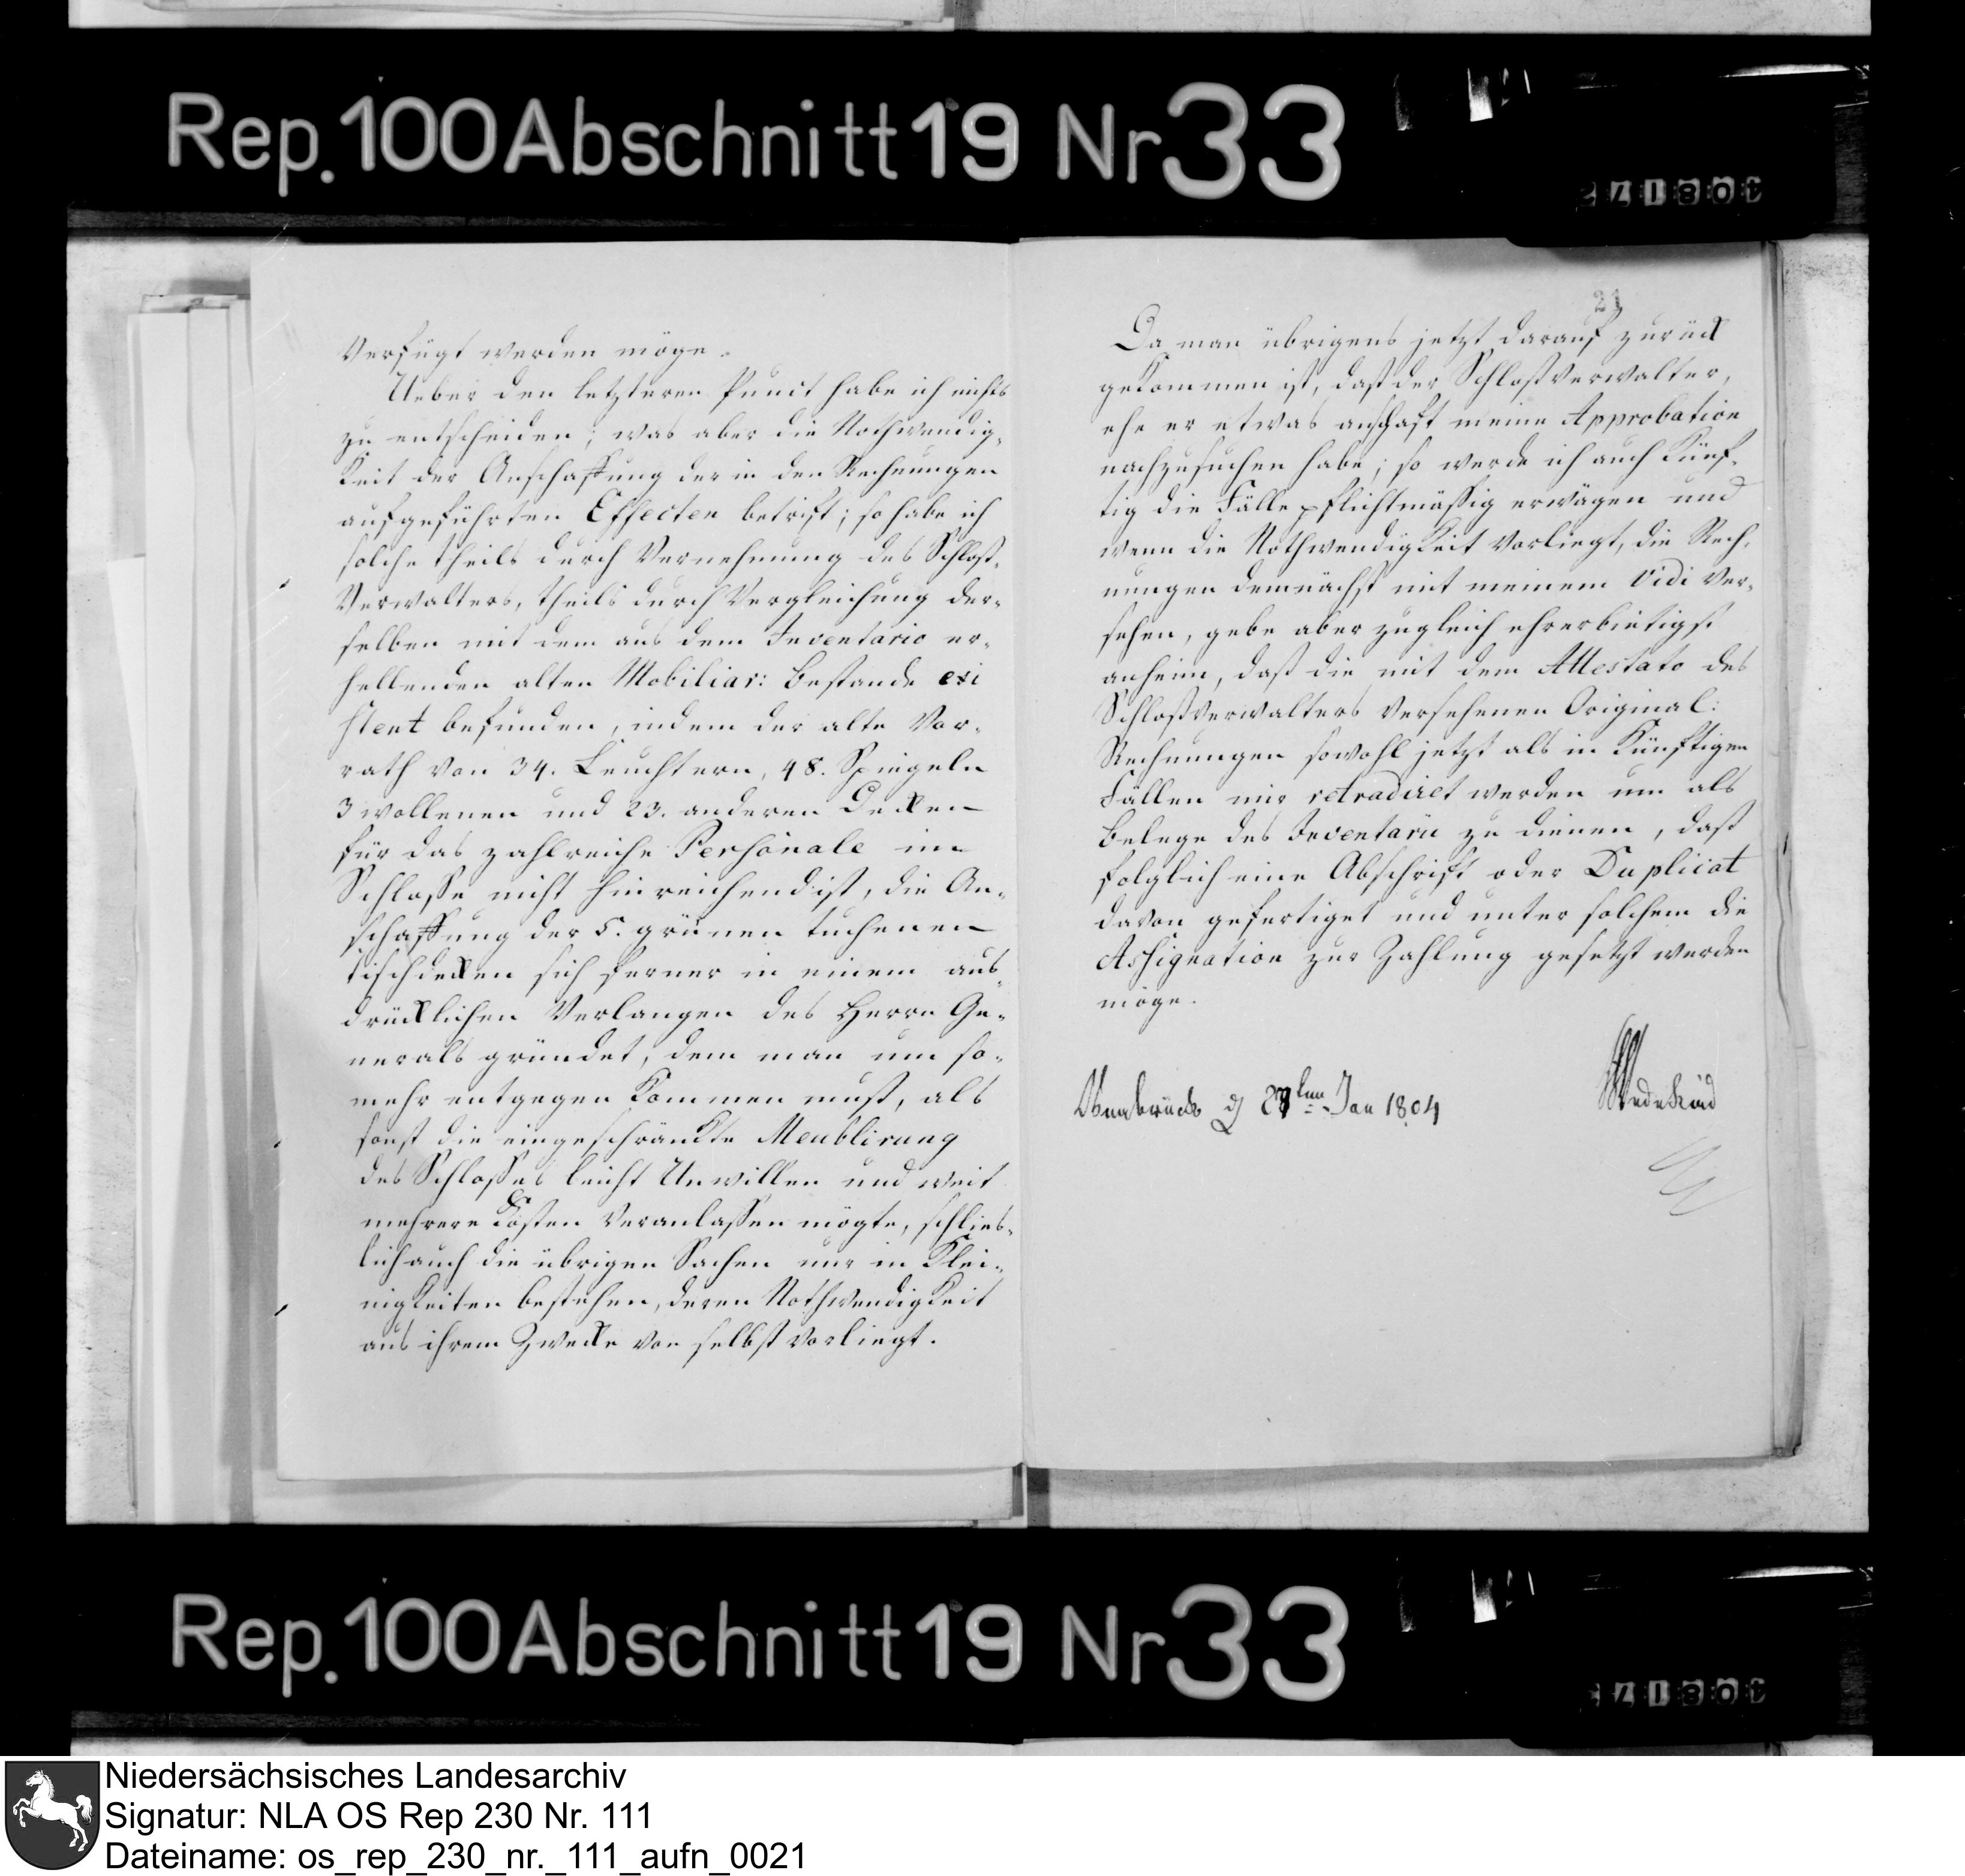 Rep.100Abschnitt19 Nr33
verfügt werden möge.
Ueber den letzteren Punct habe ich nichts
zu entscheiden; was aber die Nothwendig-
keit der Anschaffung der in den Rechnungen
aufgeführten Effecten betrift; so habe ich
solche theils durch Vernehmung des Schloß-
Verwalters, theils durch Vergleichung der-
selben mit dem aus dem Inventario er-
hellenden alten Mobiliar: Bestande exi
stent befunden, indem der alte Vor-
rath von 34. Leuchtern, 48. Spiegeln
3 wollenen und 23. anderen Decken
für das zahlreiche Personale im
Schlosse nicht hinreichend ist, die An-
schaffung der 5. grünen tuchenen
tischdecken sich ferner in einem aus-
drücklichen Verlangen des Herrn Ge-
nerals gründet, dem man um so-
mehr entgegen kommen muß, als
sonst die eingeschränkte Meublirung
des Schlosses leicht Unwillen und weit
mehrere Kosten veranlassen mögte, schlies-
lich auch die übrigen Sachen nur in Klei-
nigkeiten bestehen, deren Nothwendigkeit
aus ihrem Zwecke von selbst vorliegt.
21
Da man übrigens jetzt darauf zurück
gekommen ist, daß der Schloßverwalter,
ehe er etwas anschaft meine Approbation
nachzusuchen habe; so werde ich auch künf-
tig die Fälle pflichtmässig erwägen und
wenn die Nothwendigkeit vorliegt, die Rech-
nungen demnächst mit meinem Vidi ver-
sehen, gebe aber zugleich ehrerbietigst
anheim, daß die mit dem Attestato des
Schloßverwalters versehenen Original:
Rechnungen sowohl jetzt als in künftigen
Fällen mir retradiret werden um als
Belege des Inventarii zu dienen, daß
folglich eine Abschrift oder Duplicat
davon gefertiget und unter solchem die
Assignation zur Zahlung gesetzt werden
möge.
Osnabrück d Jan 1804
Wedekind
Rep.100Abschnitt19 Nr33
Niedersächsisches Landesarchiv
Signatur: NLA OS Rep 230 Nr. 111
Dateiname: os_rep_230_nr._111_aufn_0021